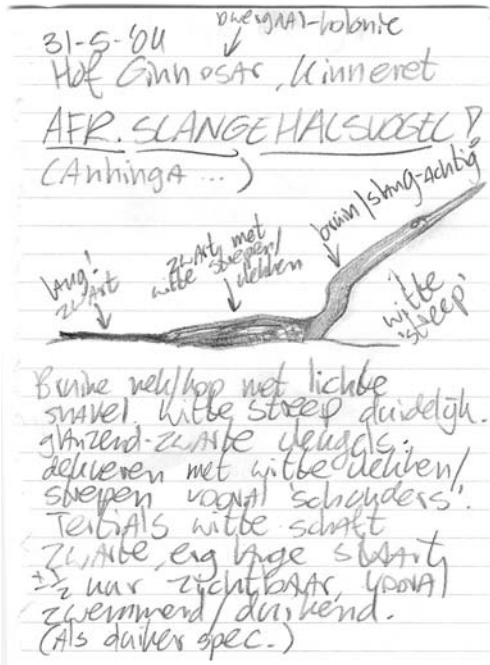 dwergaal-kolonie
31-5-'04
Hof Ginnosar, Kinneret
AFR. SLANGEHALSVOGEL!
(Anhinga ...)
bruin/slang-achtig
zwart, met
witte strepen/
vlekken
lang!
zwart
witte
'streep'
Bruine nek/kop met lichte
snavel, witte streep duidelijk.
glanzend-zwarte vleugels;
dekveren met witte vlekken/
strepen vooral 'schouders'.
Tertials witte schaft
zwarte, erg lange staart,
± ½ uur zichtbaar, vooral
zwemmend/duikend.
(Als duiker spec.)